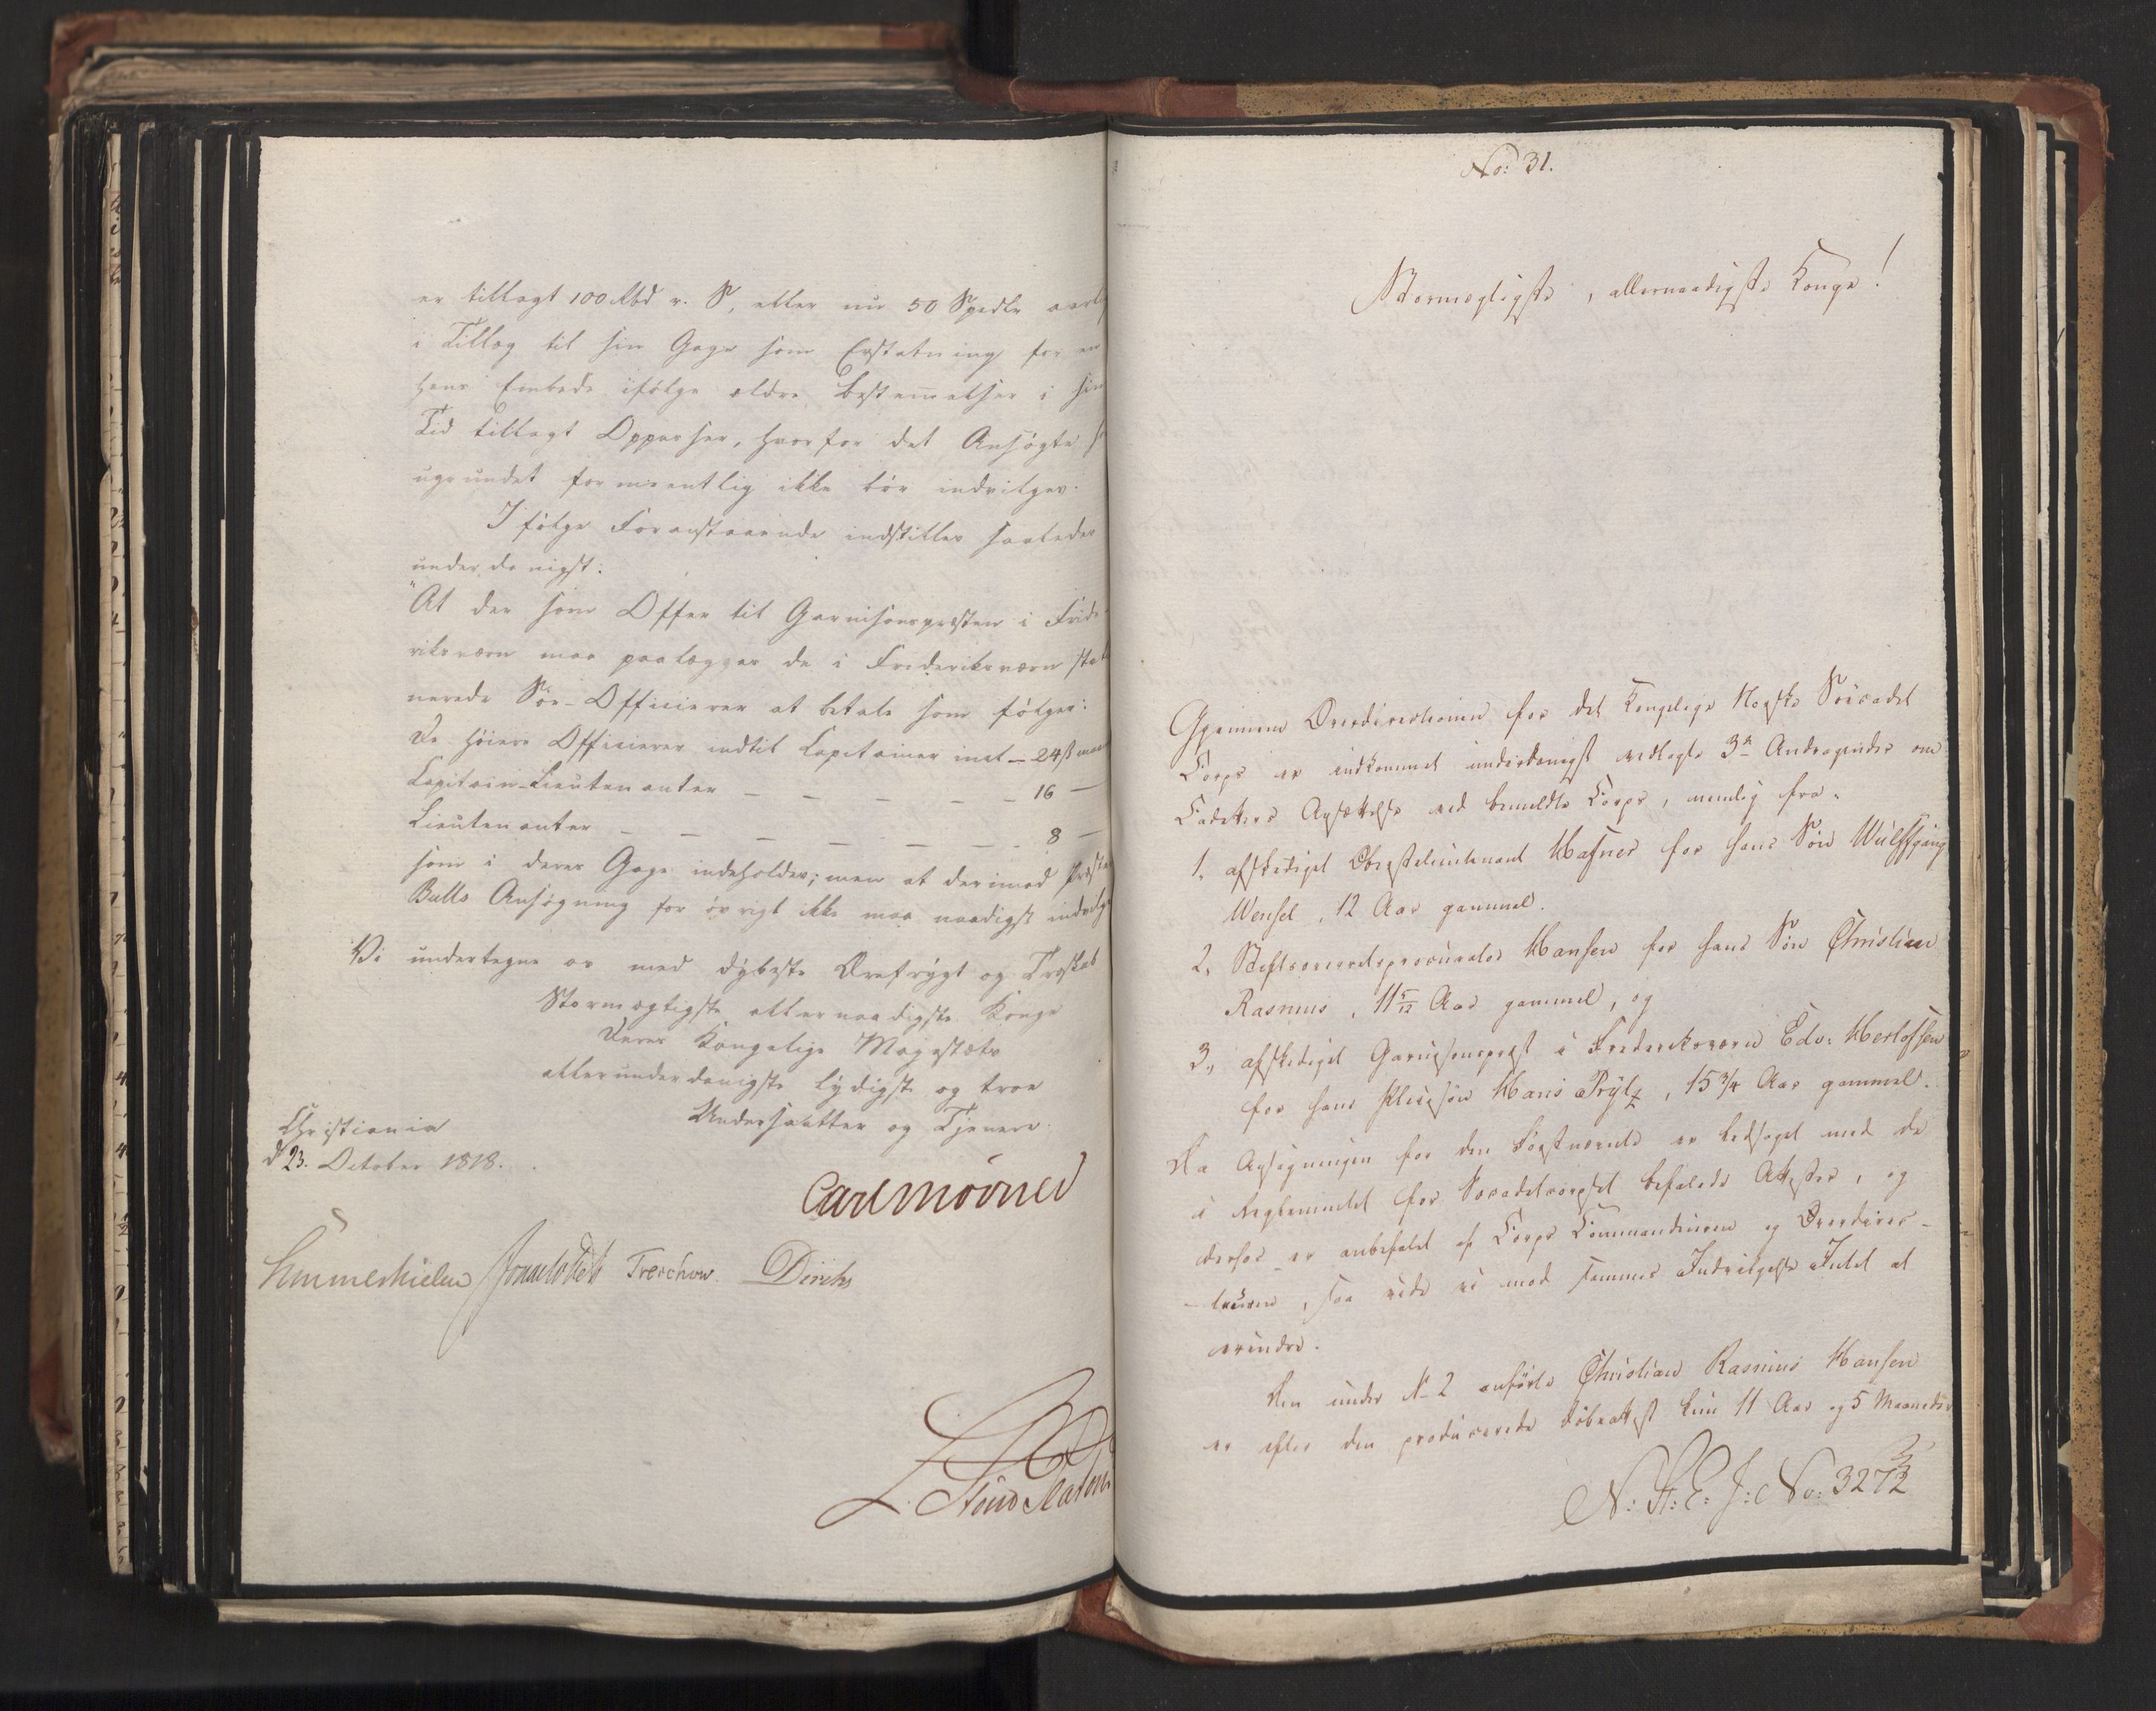 er tillagt 100 Rbd r. S, eller nu 50 Spedlr aarl
i Tillæg til sin Gage som Erstatning for en
hans Embede ifølge ældre Bestem̅elser i sin
Tid tillagt Oppasser, hvorfor det Ansøgte
ugrundet formeentlig ikke bør indvilges.
I følge Foranstaaende indstilles saaledes
underdanigst:
"At der som Offer til Garnisonspræsten i Fride-
riksværn maa paalægges de i Frideriksværn stati
nerede Søe-Officierer at betale som følger:
De høiere Officierer indtil Capitainer incl – 24 ß
Capitain-Lieutenanter – – – – – 16 –
Lieutenanter – – – – – – 8 –
som i deres Gage indeholdes; men at derimod Præsten
Bulls Ansøgning for øvrigt ikke maa naadigst indvilges
Vi undertegne os med dybeste Ærefrygt og Troskab
Stormægtigste allernaadigste Konge
Deres Kongelige Majestæts
allerunderdanigste lydigste og troe
Undersaatter og Tjenere.
Christiania
d 23. October 1818.
Carl Mörner
Sommerhielm Treschow Diriks
No: 31.
Stormægtigste, allernaadigste Konge!
Gjennem Overdirectionen for det Kongelige Norske Søecadet
Corps er indkommet underdanigst vedlagte 3de Andragender om
Cadetters Ansættelse ved bemeldte Corps, nemlig fra:
1, afskediget Obrstlieutenant Hafner for hans Søn Wulffgang
Wensel, 12 Aar gammel.
2, Stiftsoverretsprocurator Hansen for hans Søn Christian
Rasmus, 11 5/12 Aar gammel, og
3, afskediget Garnisonspræst i Frederiksværn Edv: Herlofsen
for hans Pleiesøn Hans Prytz, 15 3/4 Aar gammel.
Da Ansøgningen for den Førstnævnte er ledsaget med de
i Reglementet for Søcadetcorpset befalede Attester, og
derhos er anbefalet af Corps Commandeuren og Overdirec-
-teuren, saa vide vi mod sammes Indvilgelse Intet at
erindre.
Den under No 2 anførte Christian Rasmus Hansen
er efter den producerede Døbeattest kun 11 Aar og 5 Maaneder
N: St: E: J: No: 3273/2